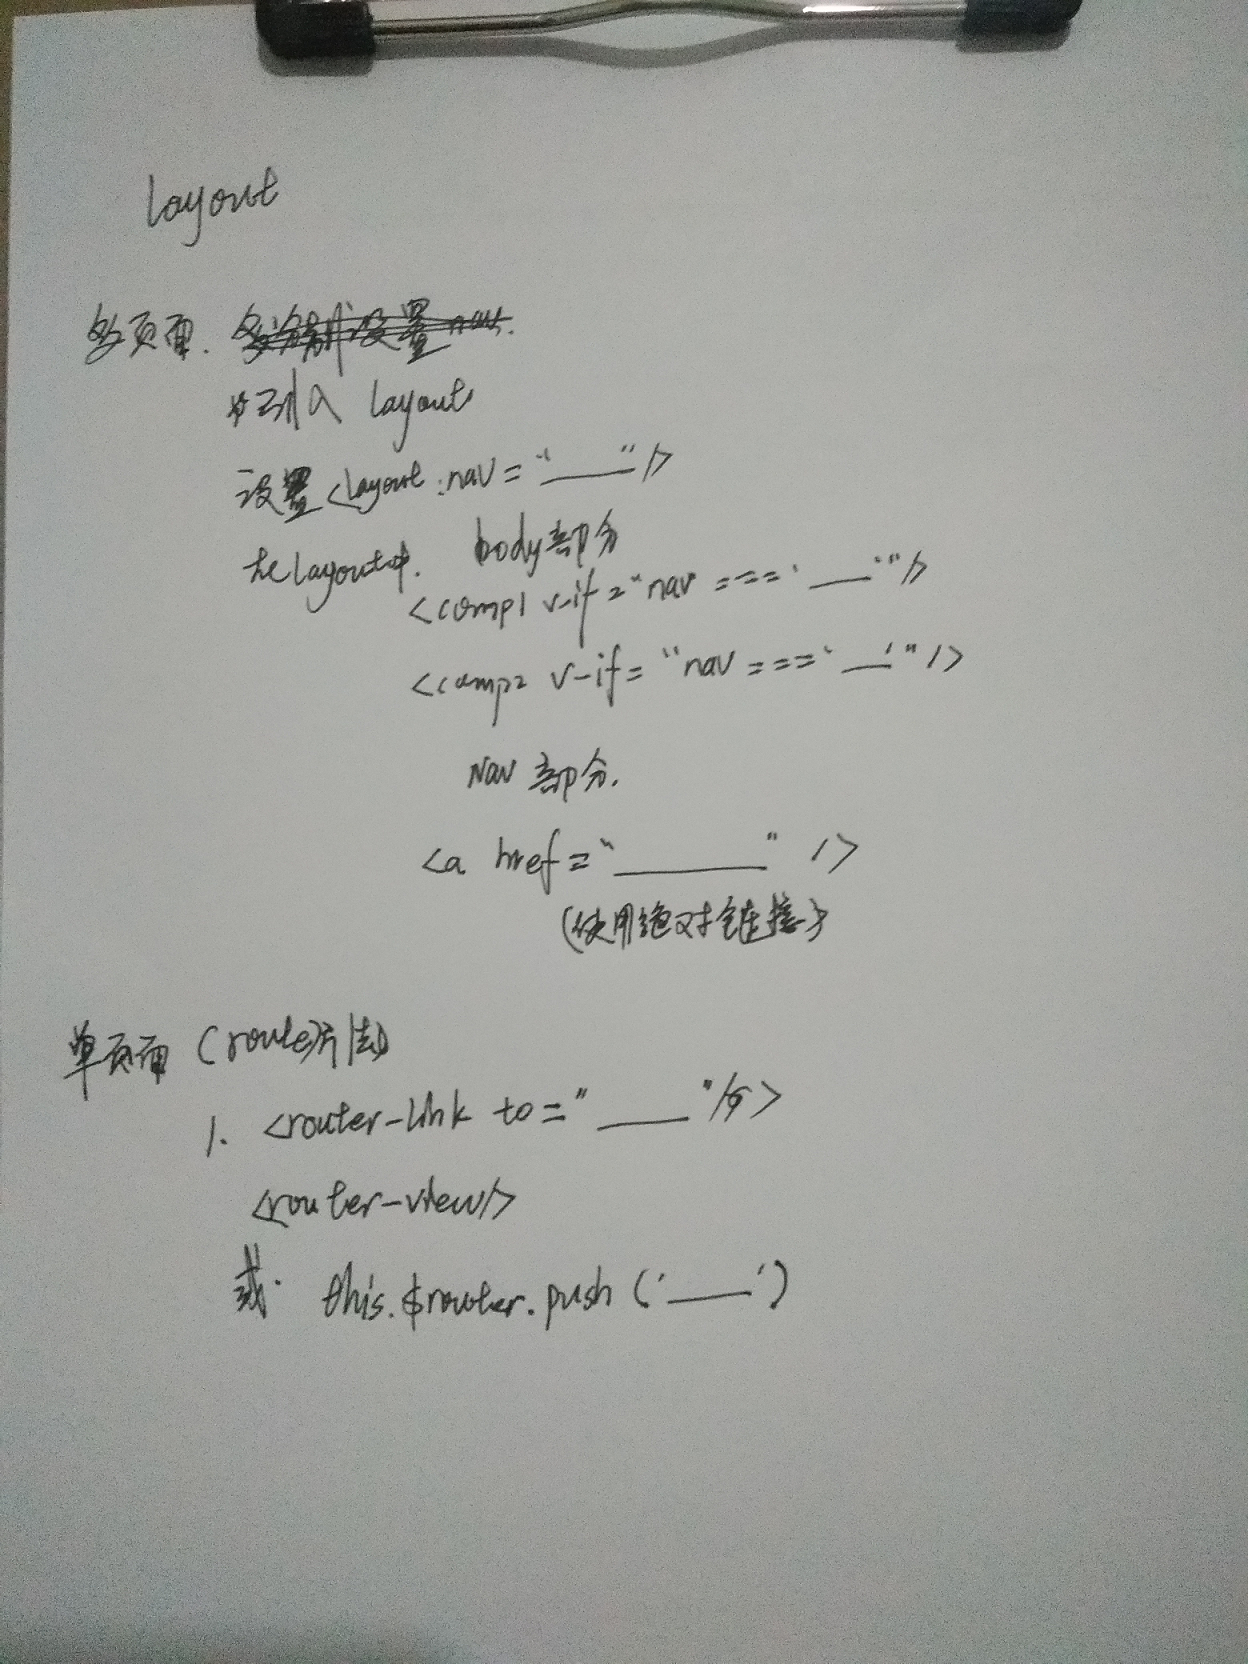 layout
多页面.
引入 layout
设置 <layout :nav = "____" />
在layout中. body部分
<comp1 v-if = "nav === '____'" />
<comp2 v-if = "nav === '__'" />
Nav 部分.
<a href = "______" />
(使用绝对链接)
单页面 (route方法)
1. <router-link to = "____" />
<router-view/>
或. this.$router.push('____')